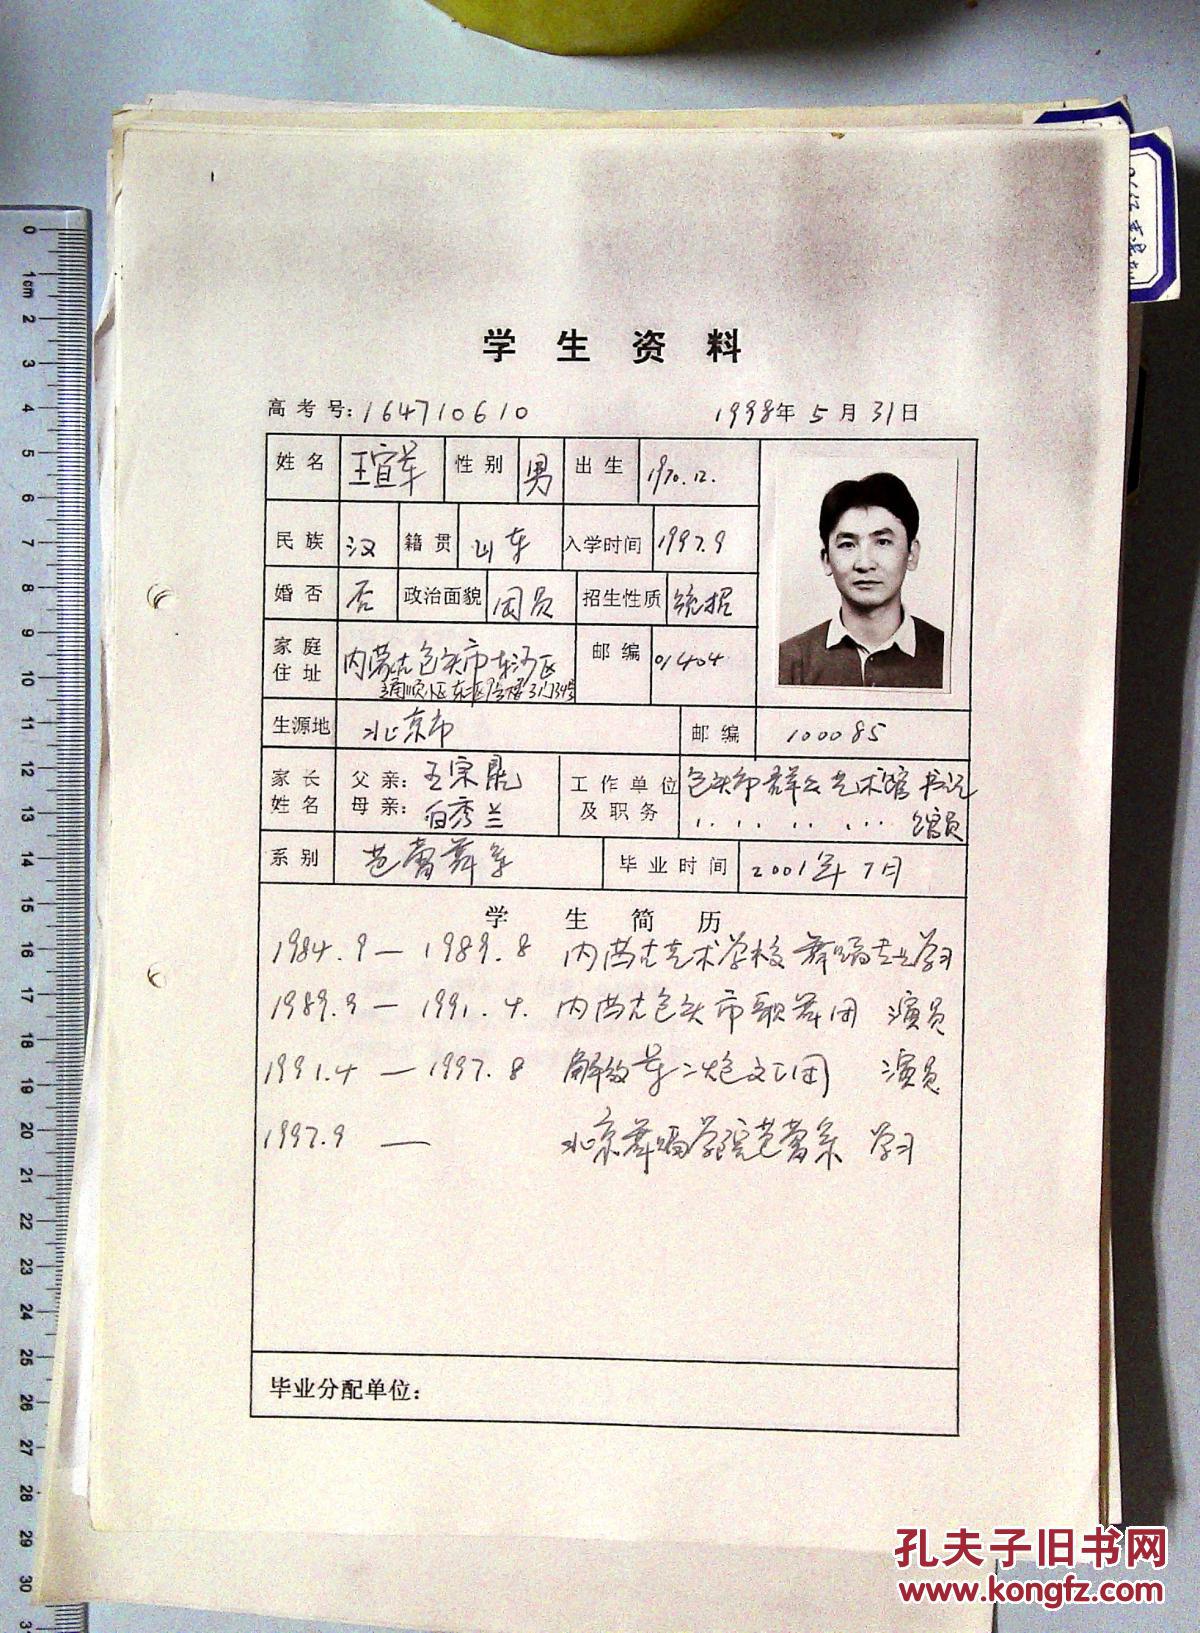 学生资料
高考号:164710610 1998年5月31日
姓名 王宜军 性别 男 出生 1970.12.
民族 汉 籍贯 山东 入学时间 1997.9
婚否 否 政治面貌 团员 招生性质 统招
家庭住址 内蒙古包头市东河区 邮编 01404
生源地 北京市 邮编 100085
家长姓名 父亲: 工作单位及职务 包头市群众艺术馆 书记
母亲:白秀兰 馆员
系别 芭蕾舞系 毕业时间 2001年7月
学生简历
1984.9—1989.8 内蒙古艺术学校舞蹈专业学习
1989.9—1991.4. 内蒙古包头市歌舞团 演员
1991.4—1997.8 解放军二炮文工团 演员
1997.9— 北京舞蹈学院芭蕾系 学习
毕业分配单位:
0 1cm 2 3 4 5 6 7 8 9 10 11 12 13 14 15 16 17 18 19 20 21 22 23 24 25 26 27 28 29 30
孔夫子旧书网
www.kongfz.com